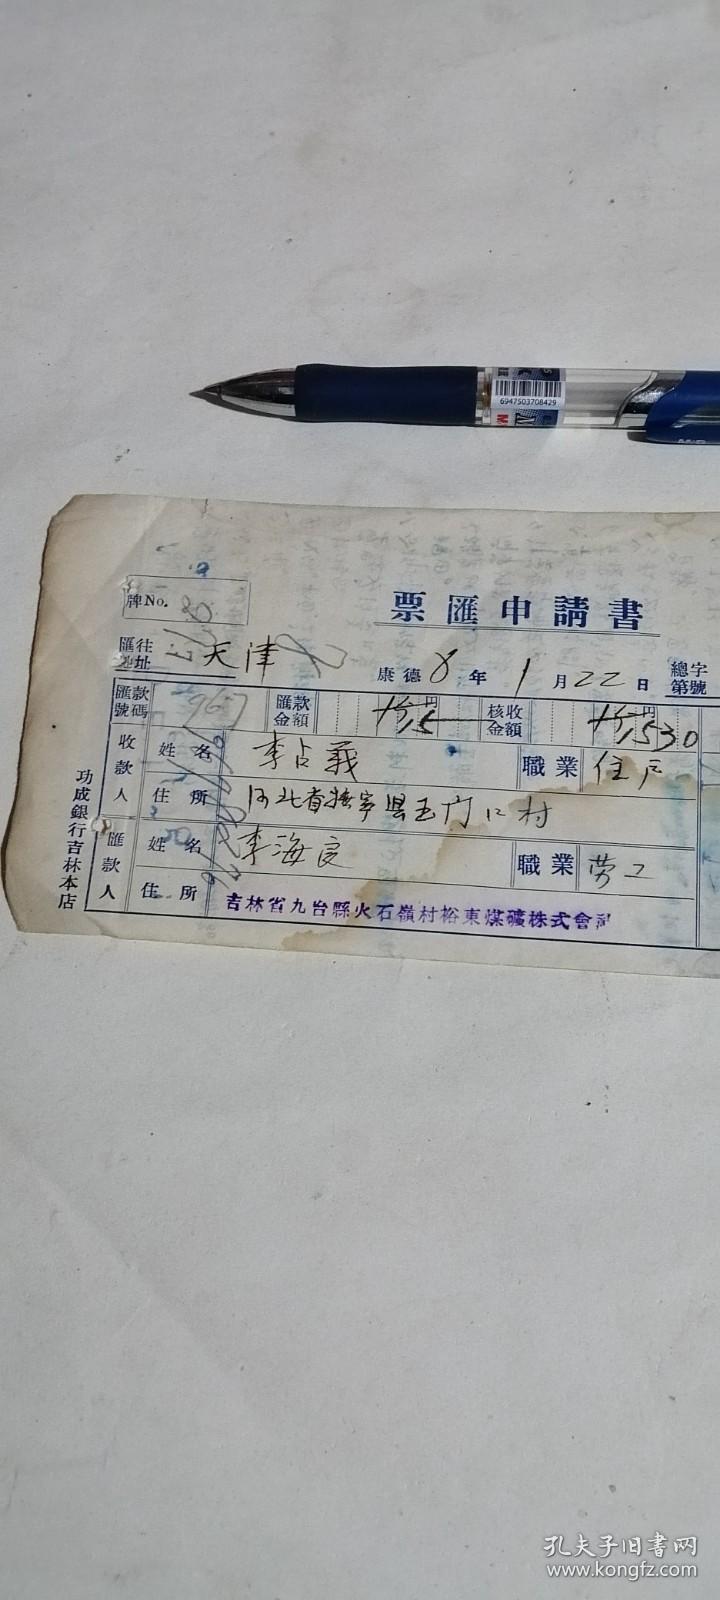 6947503708429
M
票匯申請書
牌No.
匯往地址 天津
康德8年1月22日
總字第號
匯款號碼 967
匯款金額 15
核收金額 1530
收款人
姓名 李占義
職業 住戶
住所 河北省撫寧縣玉门口村
匯款人
姓名 李海良
職業 劳工
住所 吉林省九台縣火石嶺村裕東煤礦株式會社
功成銀行吉林本店
孔夫子旧書网
www.kongfz.com